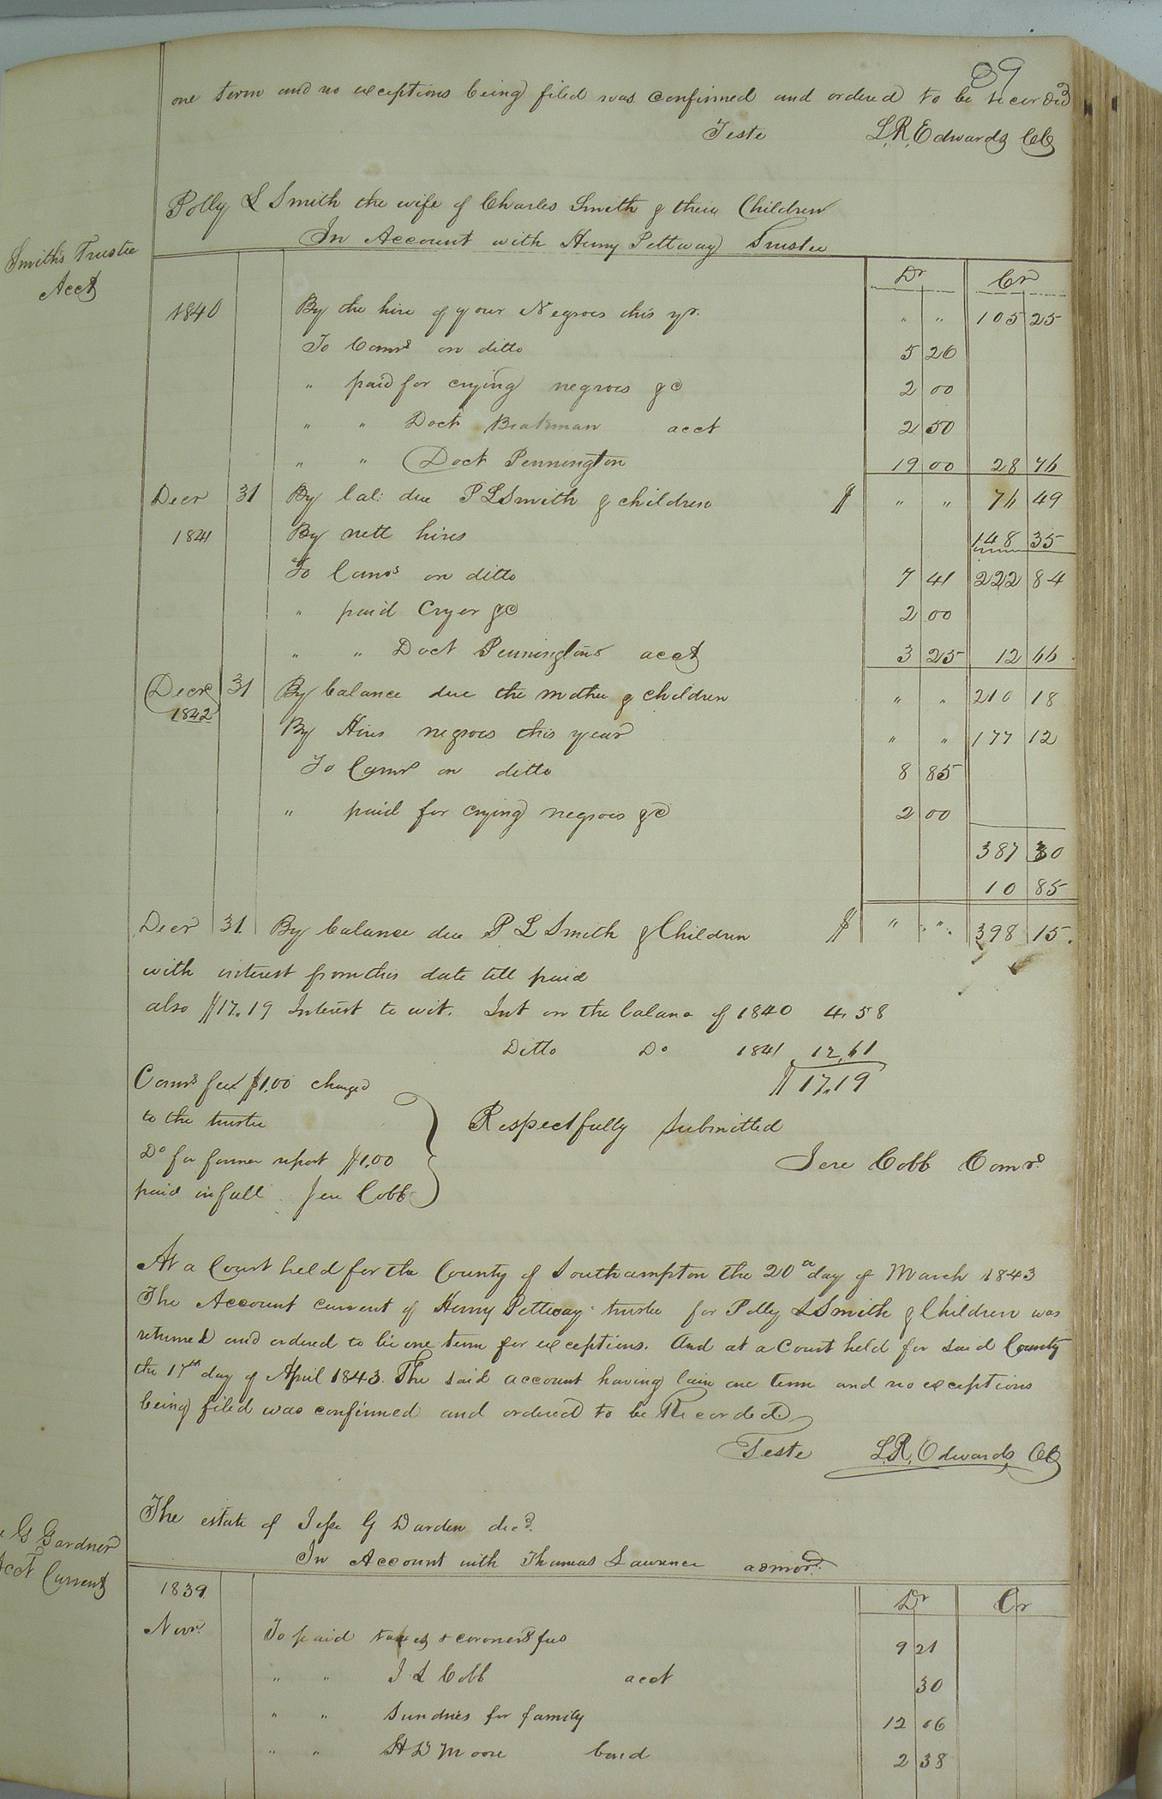 89
one term and no exceptions being filed was confirmed and ordered to be recorded
Teste L. R. Edwards CC
Polly L Smith the wife of Charles Smith & their Children
In Account with Henry Pettway Trustee
Smith's Trustee
Acct
Dr Cr
1840 By the hire of your Negroes this yr. " " 105 25
To Coms on ditto 5 26
" paid for crying negroes &c 2 00
" " Doct acct 2 50
" " Doct Pennington 19 00 28 76
Decr 31 By bal: due P L Smith & children $ " " 76 49
1841 By nett hires 148 35
To Coms on ditto 7 41 222 84
" paid Cryer &c 2 00
" " Doct Penningtons acct 3 25 12 66
Decr 31 By balance due the mother & children " " 210 18
1842 By Hires negroes this year " " 177 12
To Coms on ditto 8 85
" paid for crying negroes &c 2 00
387 30
10 85
Decr 31 By balance due P L Smith & Children $ " " 398 15.
with interest from this date till paid
also $17.19 Interest to wit. Int on the balance of 1840 4.58
Ditto Do 1841 12.61
$17.19
Comrs fee $1.00 charged
to the trustee
Do for former report $1.00
paid in full Jere Cobb
Respectfully Submitted
Jere Cobb Comr.
At a Court held for the County of Southampton the 20th day of March 1843
The Account current of Henry Pettway trustee for Polly L Smith & Children was
returned and ordered to lie one term for exceptions. And at a Court held for said County
the 17th day of April 1843. The said account having lain one term and no exceptions
being filed was confirmed and ordered to be Recorded
Teste L. R. Edwards CC
The estate of Jesse G Darden decd.
In Account with Thomas Lawrence admor.
G Gardner
Acct Current
1839. Dr Cr
Novr. To paid taxes & coroners fees 9 21
" " J L Cobb acct 30
" " Sundries for family 12 06
" " H D Moore bond 2 38